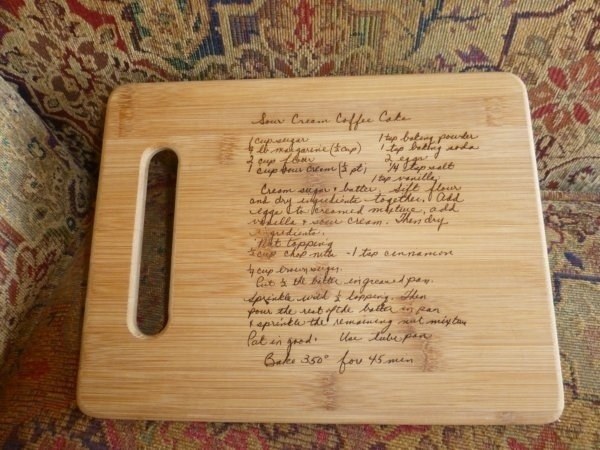 Sour Cream Coffee Cake
1 cup sugar 1 tsp baking powder
¼ lb. margarine (½ cup) 1 tsp baking soda
2 cup flour 2 eggs
1 cup sour cream (½ pt) ¼ tsp salt
1 tsp vanilla
Cream sugar & butter, sift flour
and dry ingredients together. Add
eggs to creamed mixture, add
vanilla & sour cream. Then dry
ingredients.
Nut topping
cup chop nuts - 1 tsp cinnamon
¼ cup brown sugar.
Put ½ the batter in greased pan.
Sprinkle with ½ topping. Then
pour the rest of the batter in pan
& sprinkle the remaining nut mixture
Pat in good. Use tube pan
Bake 350° for 45 min